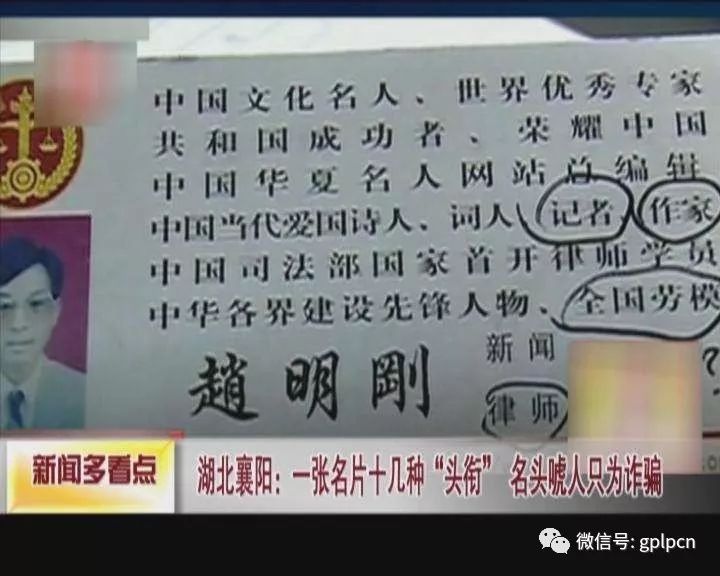 中国文化名人、世界优秀专家
共和国成功者、荣耀中国
中国华夏名人网站总编辑
中国当代爱国诗人、词人、记者、作家
中国司法部国家首开律师学员
中华各界建设先锋人物、全国劳模
趙明剛
新闻
律师
新闻多看点
湖北襄阳：一张名片十几种“头衔” 名头唬人只为诈骗
微信号: gplpcn